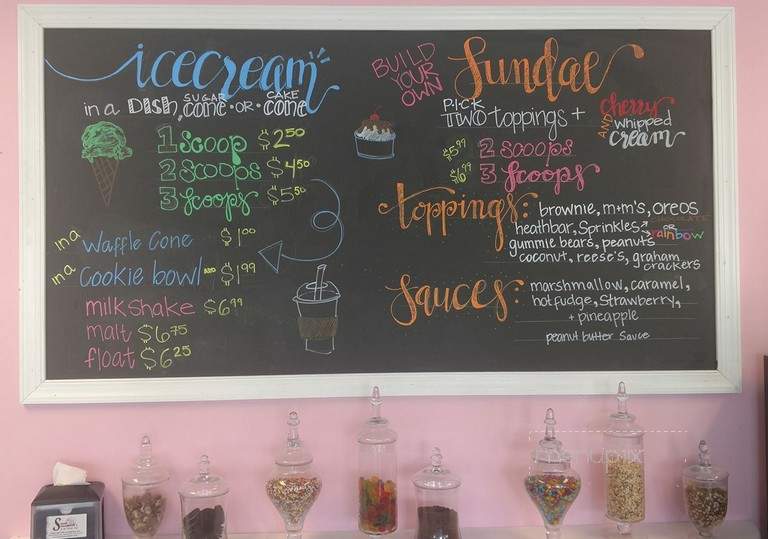 icecream
in a DISH, SUGAR CONE -OR- CAKE CONE
1 Scoop $2.50
2 Scoops $4.50
3 Scoops $5.50
in a Waffle Cone $1.00
in a Cookie bowl ADD $1.99
milkshake $6.99
malt $6.75
float $6.25
BUILD YOUR OWN Sundae
PICK TWO toppings +
cherry AND whipped cream
$5.99 2 scoops
$6.99 3 Scoops
toppings: brownie, m+m's, OREOS
heathbar, Sprinkles CHOCOLATE OR rainbow
gummie bears, peanuts
coconut, reese's, graham crackers
Sauces: marshmallow, caramel,
hot fudge, Strawberry,
+ pineapple
peanut butter Sauce
menupix